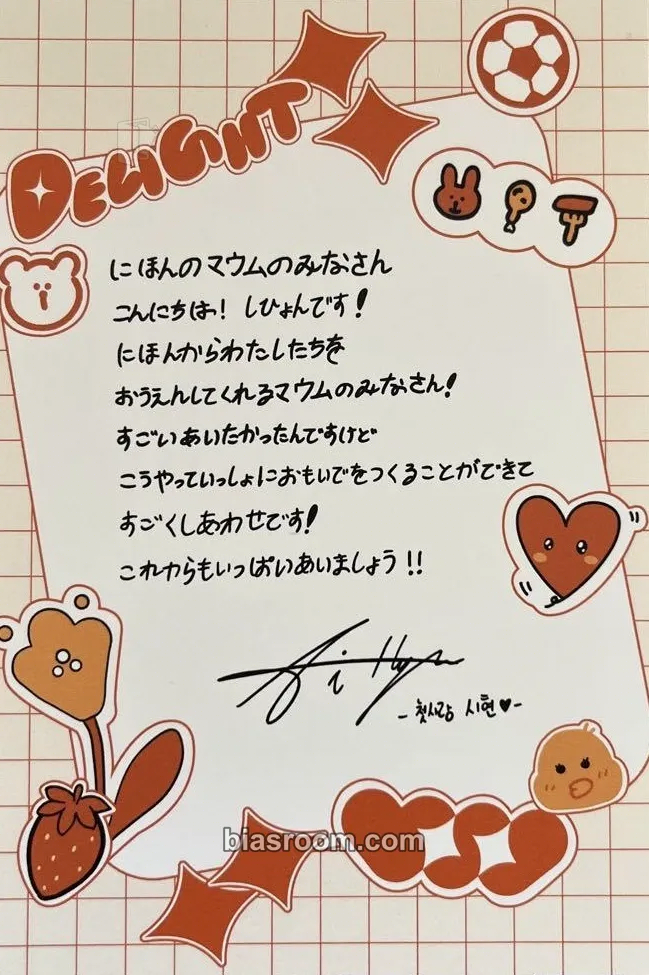 DELIGHT
にほんのマウムのみなさん
こんにちは! しひょんです!
にほんからわたしたちを
おうえんしてくれるマウムのみなさん!
すごいあいたかったんですけど
こうやっていっしょにおもいでをつくることができて
すごくしあわせです!
これからもいっぱいあいましょう!!
SiHyn
-첫사랑 시현♥-
biasroom.com